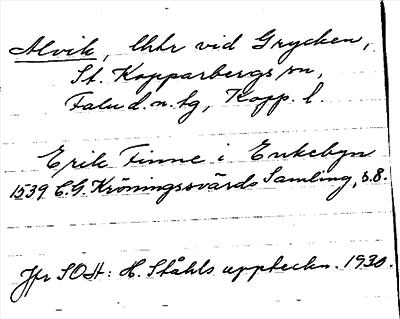 Alvik, lhtr vid Grycken,
St. Kopparbergs sn,
Falu d.n. tg, Kopp. l.
Erik Finne i Enkebyn
1539 C.G. Kröningssvärds Samling, s. 8.
Jfr SOH: H. Ståhls uppteckn. 1930.